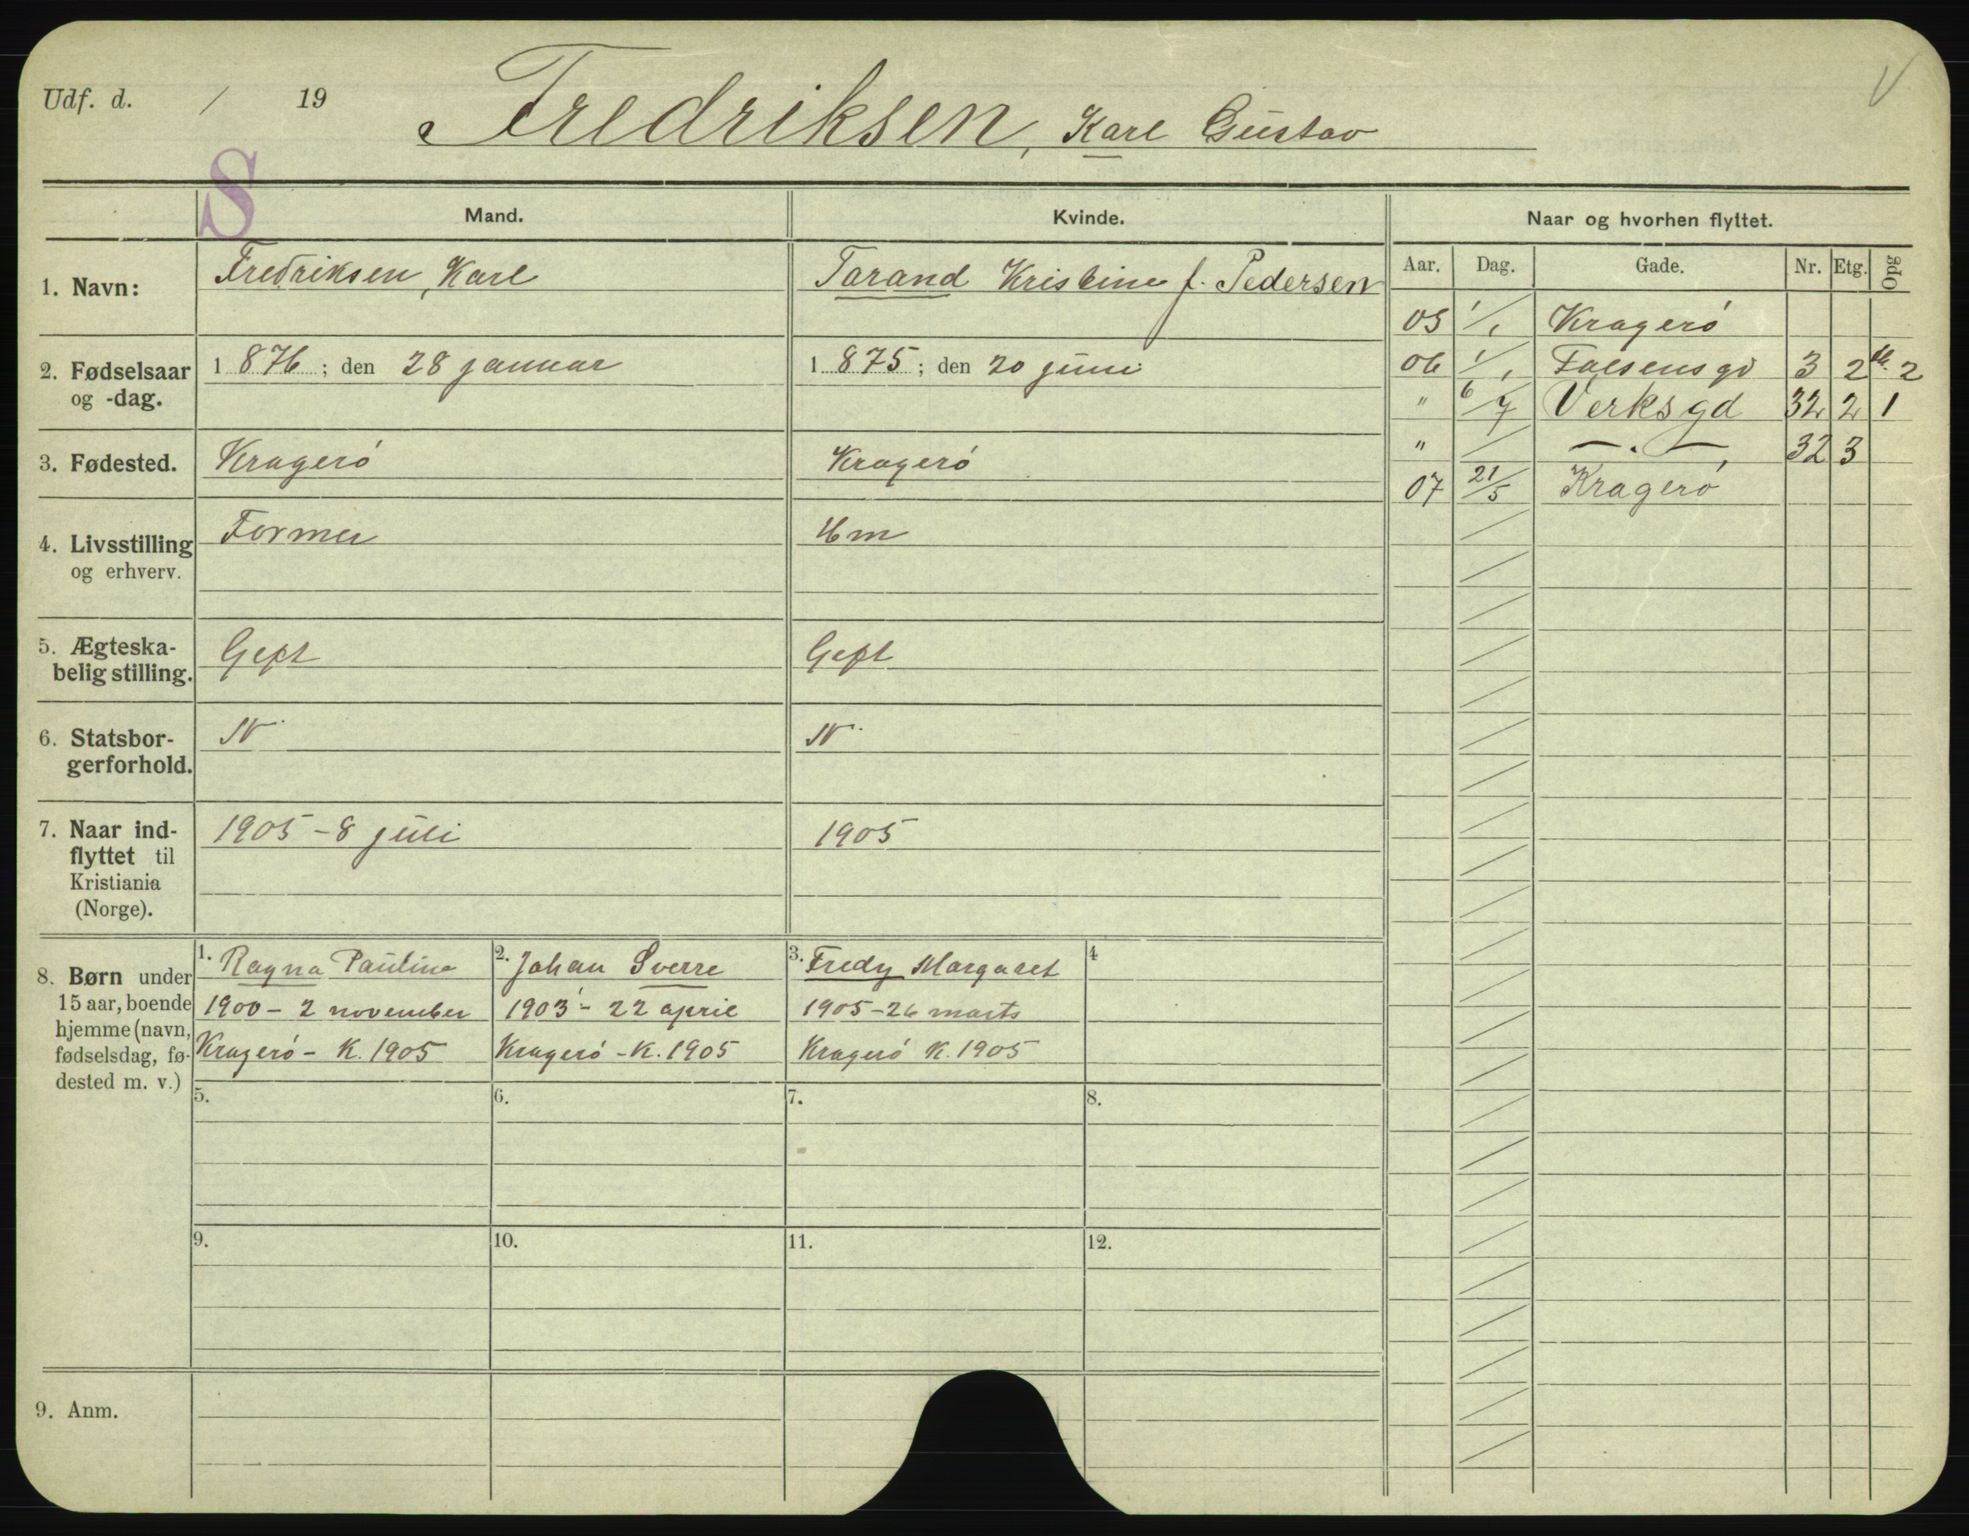 Udf. d. / 19
Fredriksen, Karl Gustav
S
Mand.
Kvinde.
Naar og hvorhen flyttet.
Aar. Dag. Gade. Nr. Etg. Opg
1. Navn:
Fredriksen, Karl
Tarand Kristine f. Pedersen
05 1/1 Kragerö
2. Fødselsaar
og -dag.
1876; den 28 januar
1875; den 20 juni
06 1/1 Falsensgd 3 2 2
" 6/7 Verksgd 32 2 1
" / — . — 32 3
3. Fødested.
Kragerö
Kragerö
07 21/5 Kragerö
4. Livsstilling
og erhverv.
Former
Hm
5. Ægteska-
belig stilling.
Gift
Gift
6. Statsbor-
gerforhold.
N.
N.
7. Naar ind-
flyttet til
Kristiania
(Norge).
1905 - 8 juli
1905
8. Børn under
15 aar, boende
hjemme (navn,
fødselsdag, fø-
dested m. v.)
1. Ragna Pauline
1900 - 2 november
Kragerö - K. 1905
2. Johan Sverre
1903 - 22 april
Kragerö - K. 1905
3. Fredy Margaret
1905 - 26 marts
Kragerö K. 1905
4
5.
6.
7.
8.
9.
10.
11.
12.
9. Anm.